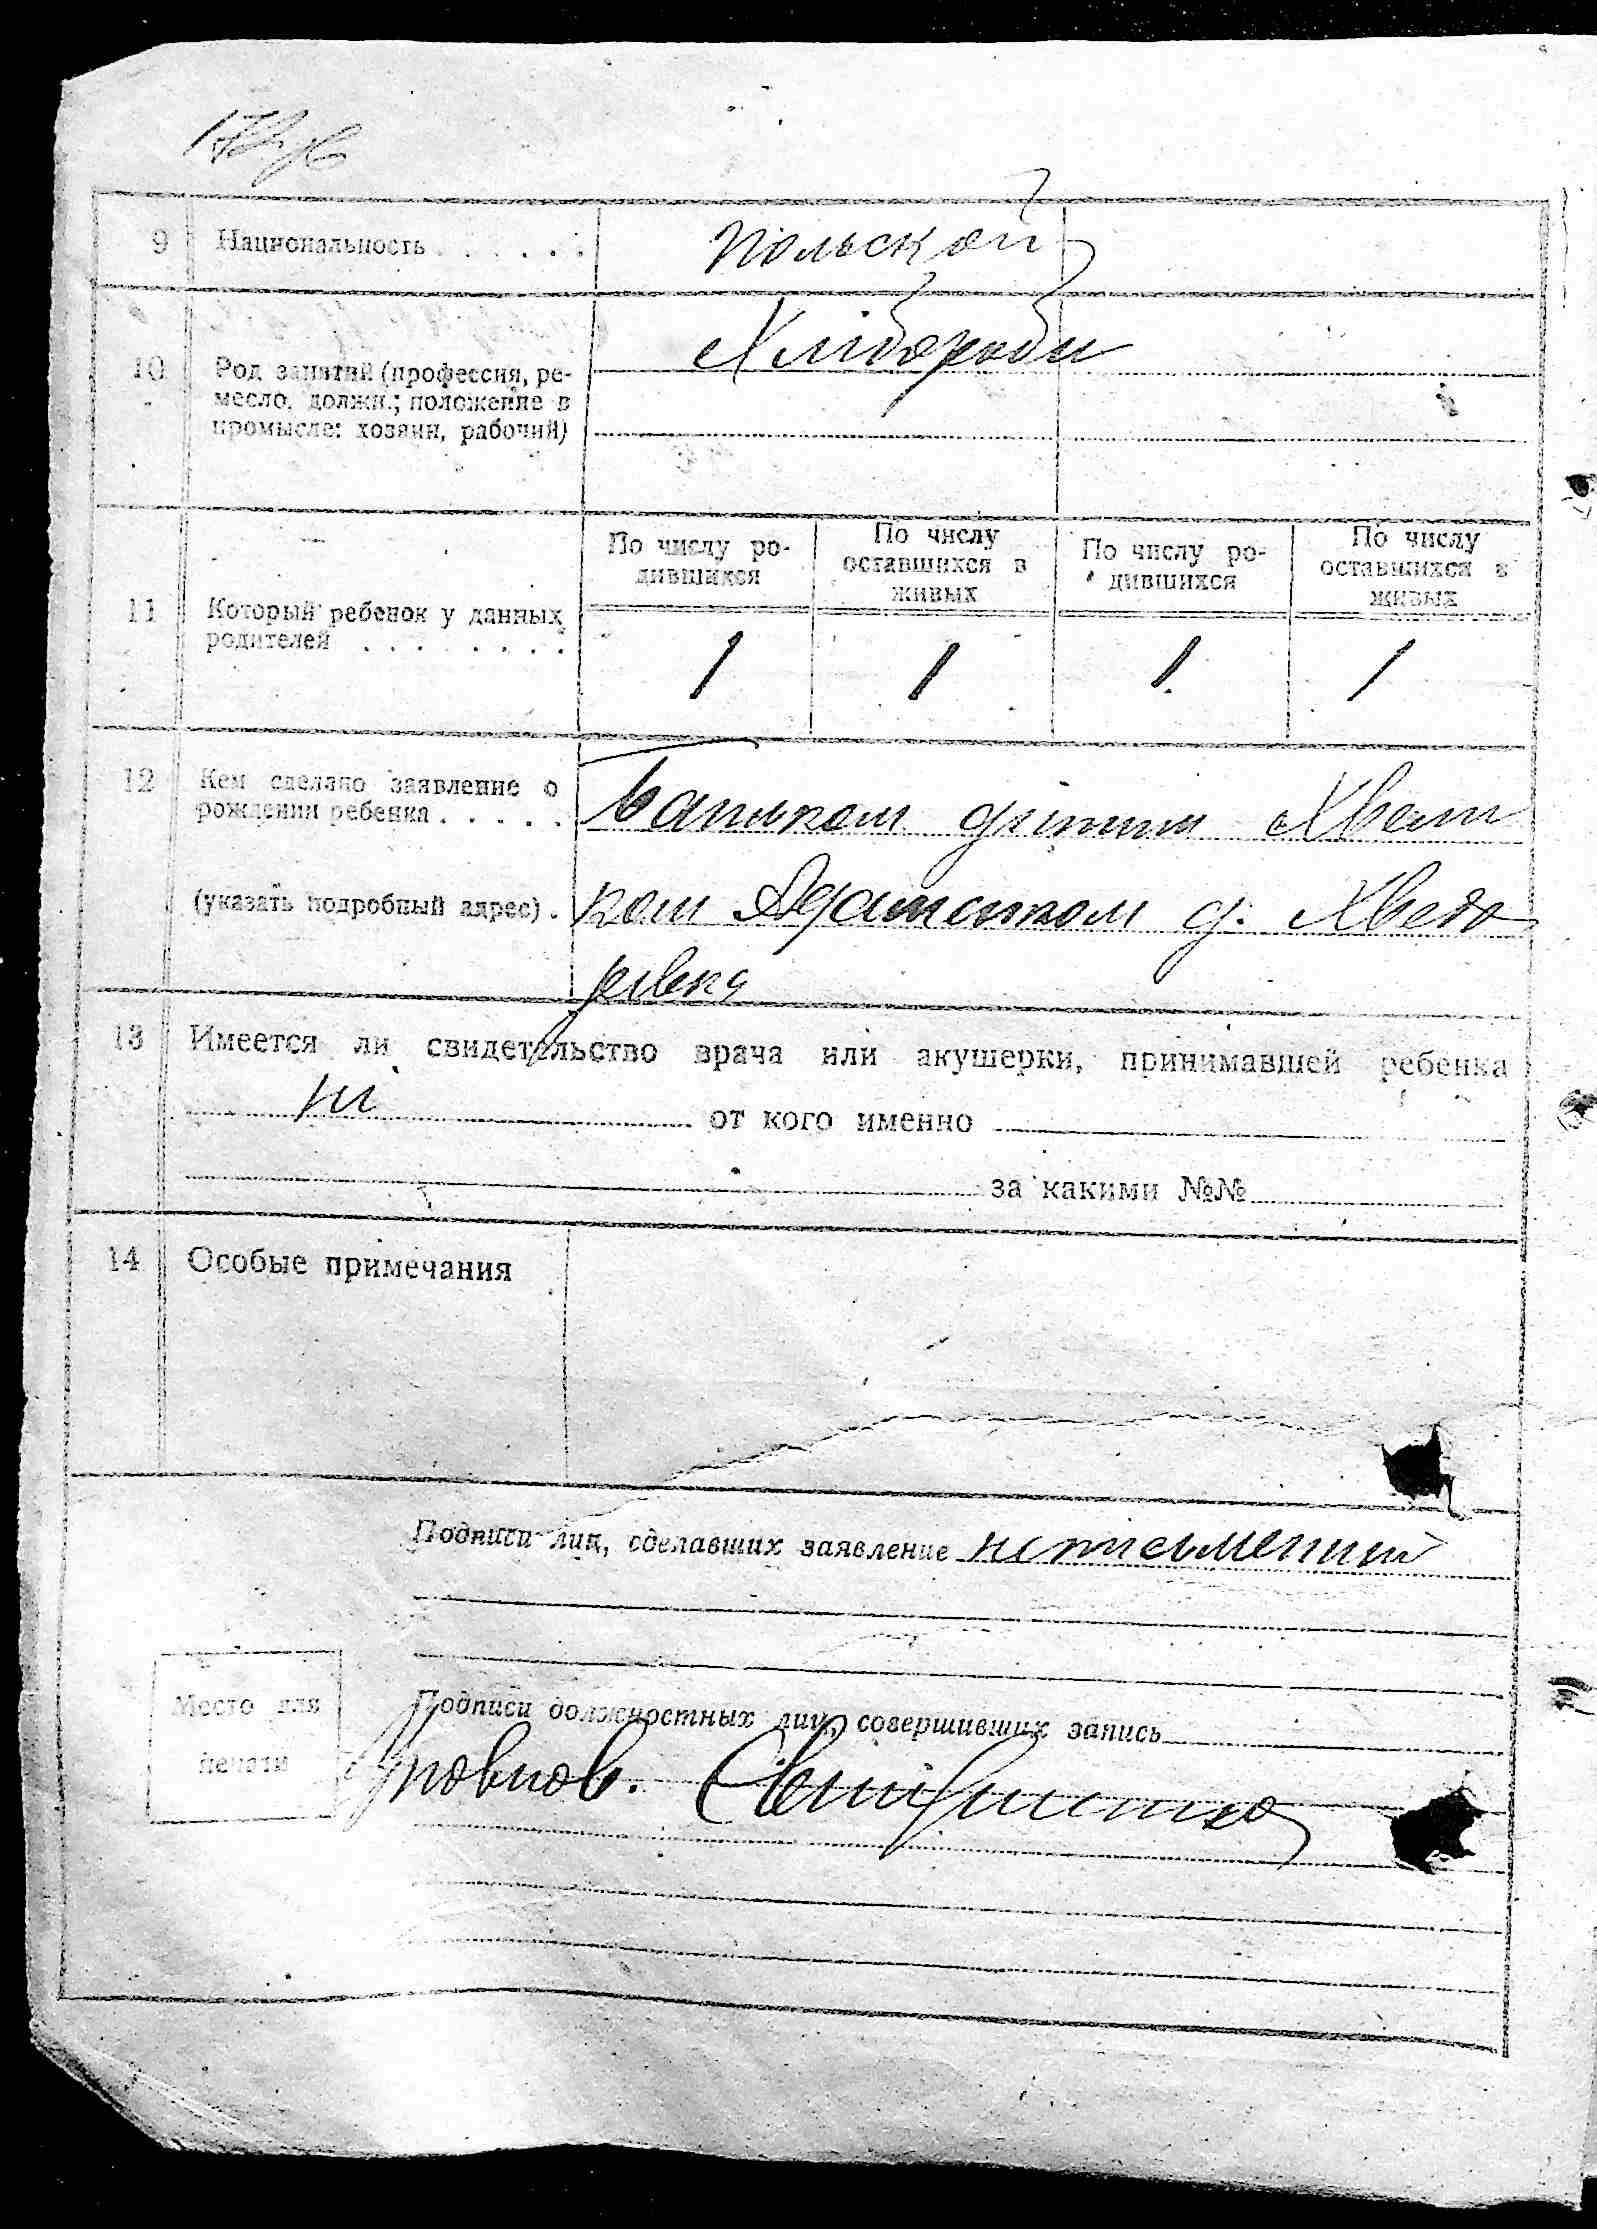 9 Национальность . . . . . . польскои
10 Род занятий (профессия, ре-
месло, должн.; положение в
промысле: хозяин, рабочий)
Хлібороби
11 Который ребенок у данных
родителей . . . . . . . .
По числу ро-
дившихся
По числу
оставшихся в
живых
По числу ро-
дившихся
По числу
оставшихся в
живых
1 1 1 1
12 Кем сделано заявление о
рождении ребенка . . . . .
(указать подробный адрес) .
Батьком дитини
ком д. Хведо
рівка
13 Имеется ли свидетельство врача или акушерки, принимавшей ребенка
ні от кого именно
за какими №№
14 Особые примечания
Подписи лиц, сделавших заявление неписьменний
Место для
печати
Подписи должностных лиц, совершивших запись